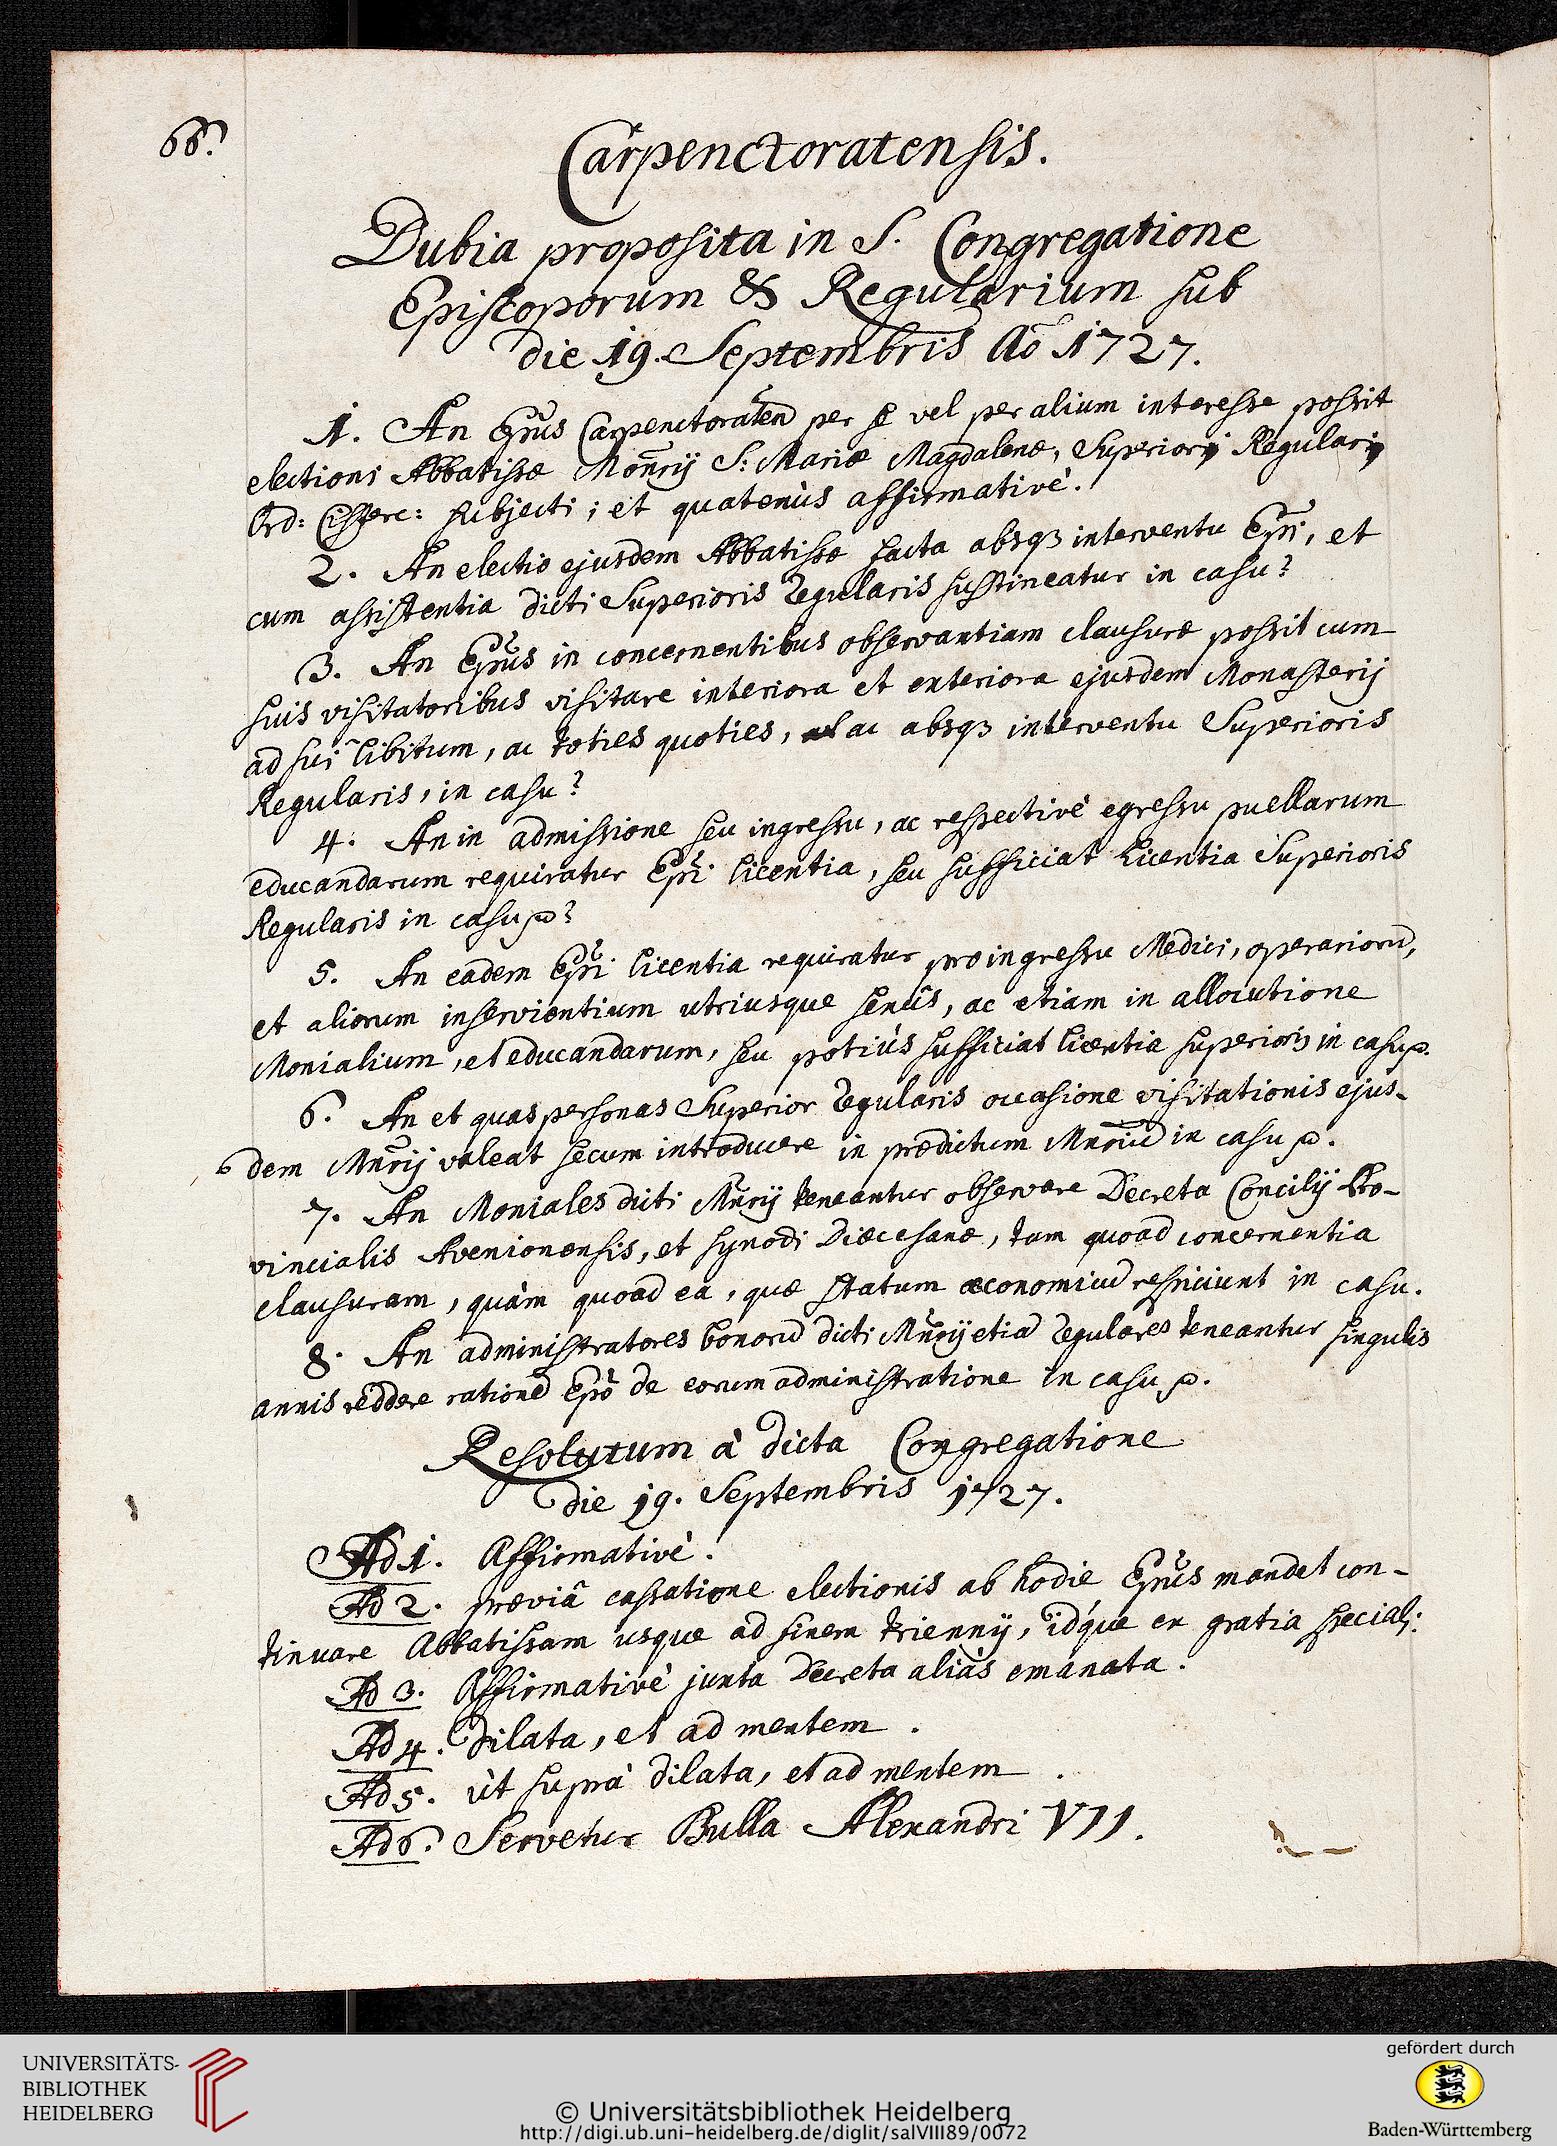 66.
Carpenctoratensis.
Dubia proposita in S. Congregatione
Episcoporum & Regularium sub
die 19. Septembris Ao 1727.
1. An Epus Carpenctoraten per se vel per alium interesse possit
electioni Abbatissæ Monrij S: Mariæ Magdalenæ, Superiori Regulari
Ord: Cisterc: subjecti; et quatenùs affirmativè.
2. An electio ejusdem Abbatissæ facta absq3 interventu Epi, et
cum assistentia dicti Superioris regularis sustineatur in casu?
3. An Epus in concernentibus observantiam clausuræ possit cum
suis visitatoribus visitare interiora et exteriora ejusdem Monasterij
ad sui libitum, ac toties quoties, ac absq3 interventu Superioris
Regularis, in casu?
4. An in admissione seu ingressu, ac respectivè egressu puellarum
educandarum requiratur Epi licentia, seu sufficiat licentia Superioris
Regularis in casu p?
5. An eadem Epi licentia requiratur pro ingressu Medici, operarioru,
et aliorum inservientium utriusque sexûs, ac etiam in allocutione
Monialium, et educandarum, seu potiùs sufficiat licentia superioris in casu p.
6. An et quas personas Superior regularis occasione visitationis ejus-
dem Mnrij valeat secum introducere in prædictum Mnriu in casu p.
7. An Moniales dicti Mnrij teneantur observare Decreta Concilij Pro-
vincialis Avenionensis, et synodi Diœcesanæ, tam quoad concernentia
clausuram, quàm quoad ea, quæ statum œconomicu respiciunt in casu.
8. An administratores bonoru dicti Mnrij etia regulares teneantur singulis
annis reddere ratione Epo de eorum administratione in casu p.
Resolutum à dicta Congregatione
die 19. Septembris 1727.
Ad 1. Affirmativè.
Ad 2. præviâ cassatione electionis ab hodie Epus mandet con-
tinuare Abbatissam usque ad finem triennij, idque ex gratia speciali.
Ad 3. Affirmativè juxta Decreta aliàs emanata.
Ad 4. dilata, et ad mentem.
Ad 5. ùt suprà dilata, et ad mentem.
Ad 6. Servetur Bulla Alexandri VII.
UNIVERSITÄTS-
BIBLIOTHEK
HEIDELBERG
© Universitätsbibliothek Heidelberg
http://digi.ub.uni-heidelberg.de/diglit/salVIII89/0072
gefördert durch
Baden-Württemberg